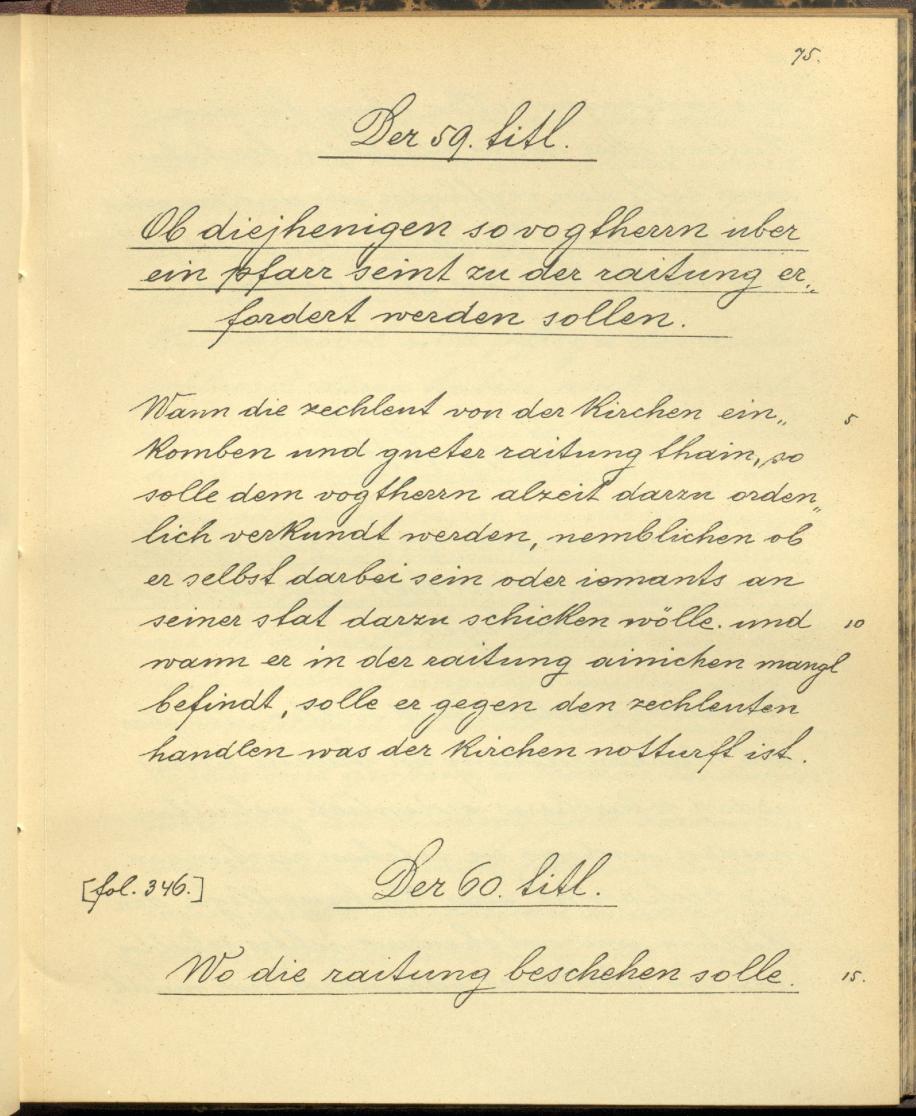 75.
Der 59. titl.
Ob diejhenigen so vogtherrn uber
ein pfarr seint zu der raitung er„
fordert werden sollen.
Wann die zechleut von der Kirchen ein„ 5
komben und gueter raitung thain, so
solle dem vogtherrn alzeit darzu orden„
lich verkundt werden, nemblichen ob
er selbst darbei sein oder iemants an
seiner stat darzu schicken wölle. und 10
wann er in der raitung ainichen mangl
befindt, solle er gegen den zechleuten
handlen was der Kirchen notturft ist.
[fol. 346.] Der 60. titl.
Wo die raitung beschehen solle. 15.